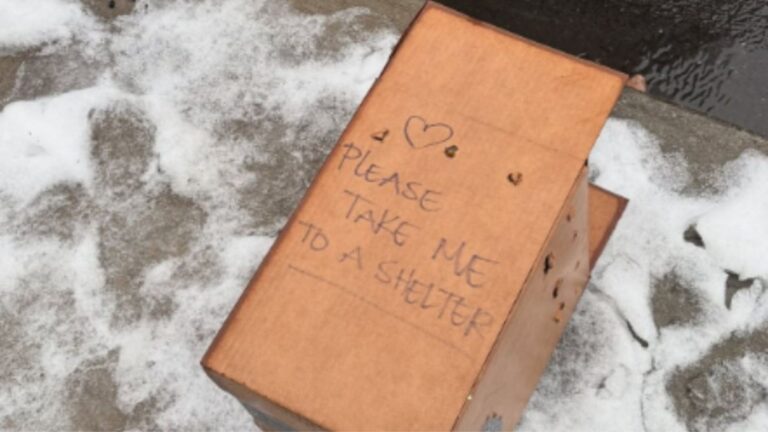 PLEASE
TAKE ME
TO A SHELTER